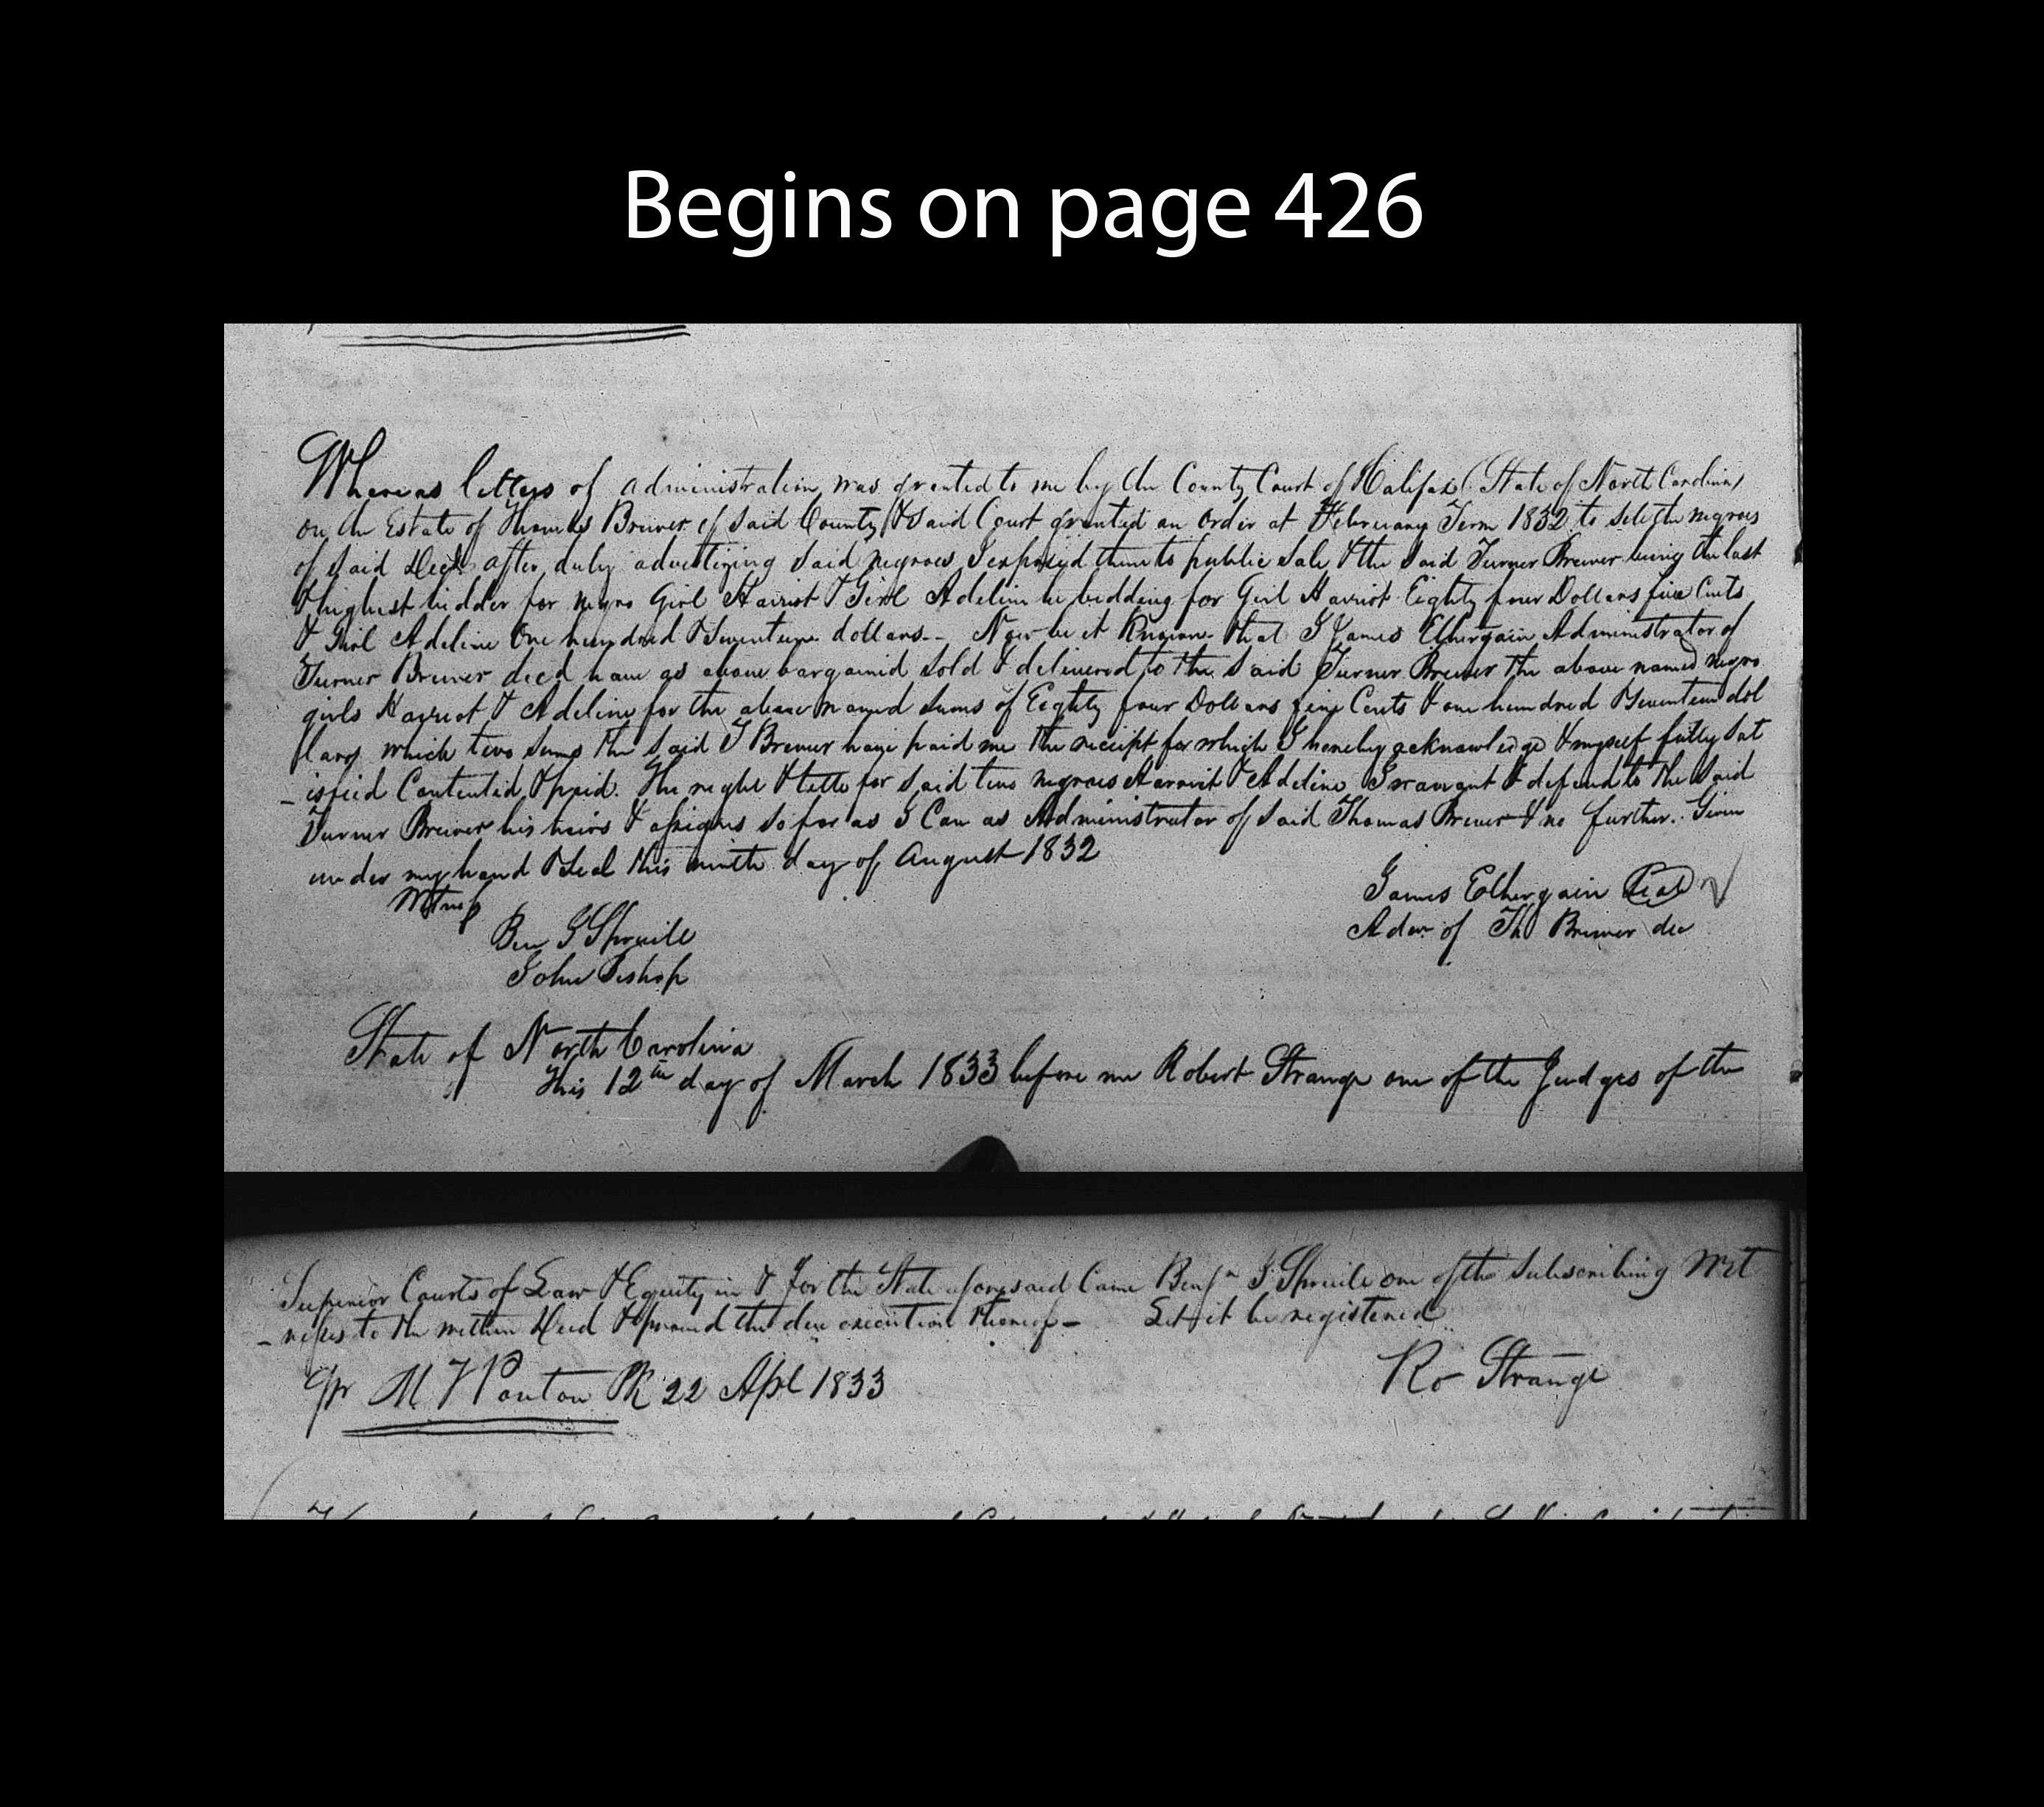 Begins on page 426
Whereas letters of administration was granted to me by the County Court of Halifax (State of North Carolina)
on the Estate of Thomas Brewer of said County & said Court granted an order at February Term 1832 to sell the negroes
of said Decd. after duly advertizing said negroes I exposed them to public sale & the said Turner Brewer being the last
& highest bidder for negro Girl Harriot & Girl Adeline he bidding for Girl Harriot Eighty four Dollars five Cents
& Girl Adeline One hundred & Seventeen dollars -- Now be it Known that I James Ethergain Administrator of
Turner Brewer decd have as above bargained sold & delivered to the said Turner Brewer the above named negro
girls Harriot & Adeline for the above named sums of Eighty four Dollars five Cents & one hundred & Seventeen dol
llars which two sums the said T Brewer have paid me the receipt for which I hereby acknowledge & myself fully sat
- isfied Contented & paid. The right & title for said two negroes Harriot & Adeline I warrant & defend to the said
Turner Brewer his heirs & assigns so far as I Can as Administrator of said Thomas Brewer & no further. Given
under my hand & Seal this ninth day of August 1832
Witness
James Ethergain Seal
Ben J Spruill
Adm of Th Brewer dec
John Bishop
State of North Carolina
This 12th day of March 1833 before me Robert Strange one of the Judges of the
Superior Courts of Law & Equity in & for the State aforesaid Came Benjn J Spruill one of the subscribing Wit
- nesses to the within Deed & proved the due execution thereof - Let it be registered
Ro Strange
Pr M H Pouton PR 22 Apl 1833